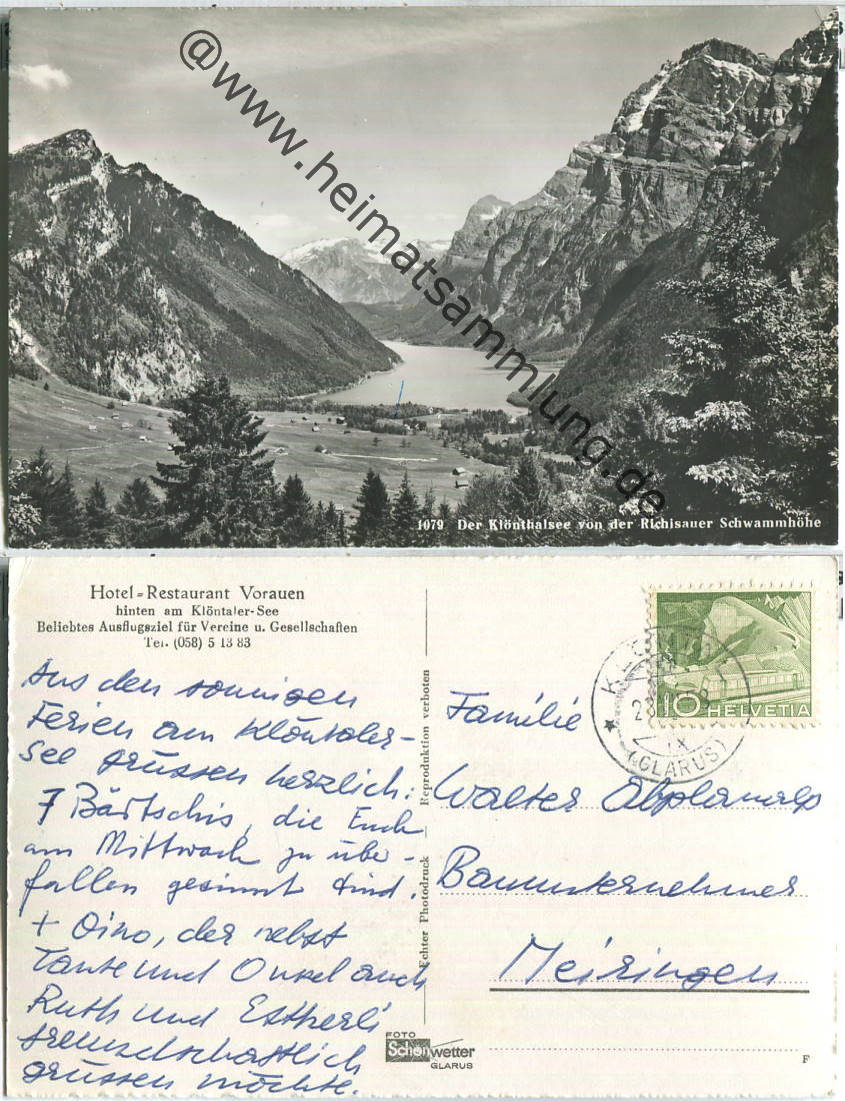 @www.heimatsammlung.de
1079 Der Klönthalsee von der Richisauer Schwammhöhe
Hotel-Restaurant Vorauen
hinten am Klöntaler-See
Beliebtes Ausflugsziel für Vereine u. Gesellschaften
Tel. (058) 5 13 83
Aus den sonnigen
Ferien am Klöntaler-
see grüssen herzlich:
7 Bärtschis, die Euch
am Mittwoch zu über-
fallen gesinnt sind.
+ Oino, der nebst
Tante und Onkel auch
Ruth und Estherli
freundschaftlich
grüssen möchte.
Echter Photodruck Reproduktion verboten
KLÖNTAL
IX
(GLARUS)
10 HELVETIA
Familie
Walter Abplanalp
Bauunternehmer
Meiringen
FOTO
Schönwetter
GLARUS
F